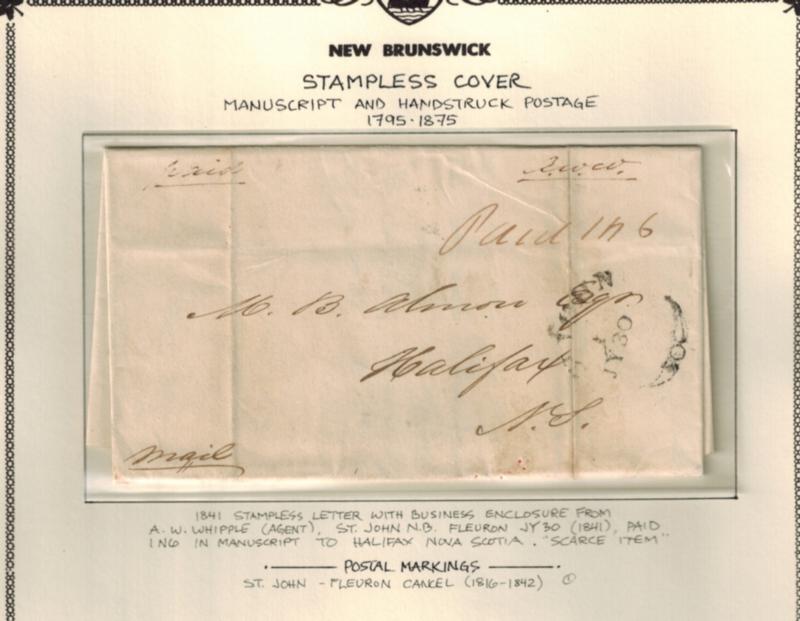 NEW BRUNSWICK
STAMPLESS COVER
MANUSCRIPT AND HANDSTRUCK POSTAGE
1795-1875
paid
A.W.W.
Paid 1N6
M. B. Almon Esqr.
JY 30
Halifax
N.S.
Mail
1841 STAMPLESS LETTER WITH BUSINESS ENCLOSURE FROM
A. W. WHIPPLE (AGENT), ST. JOHN N.B. FLEURON JY 30 (1841), PAID
1N6 IN MANUSCRIPT TO HALIFAX NOVA SCOTIA. "SCARCE ITEM"
POSTAL MARKINGS
ST. JOHN - FLEURON CANCEL (1816-1842)